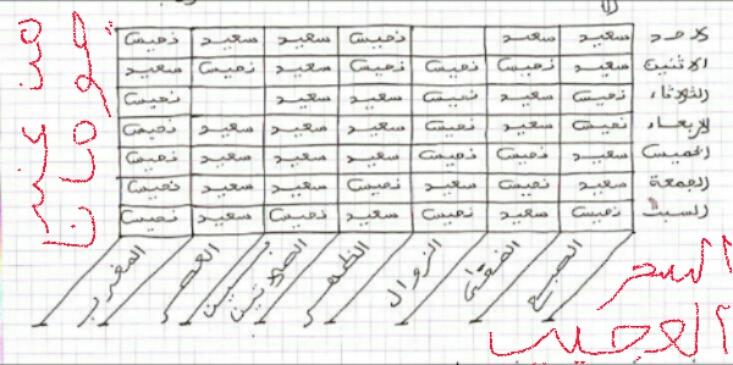 الاحد سعيد سعيد نحيس سعيد سعيد نحيس
الاثنين سعيد نحيس نحيس نحيس سعيد نحيس سعيد
الثلاثاء نحيس سعيد نحيس سعيد سعيد نحيس
الاربعاء نحيس سعيد نحيس سعيد سعيد سعيد نحيس
الخميس سعيد نحيس نحيس سعيد سعيد سعيد نحيس
الجمعة سعيد نحيس سعيد نحيس سعيد سعيد نحيس
السبت نحيس سعيد نحيس سعيد نحيس سعيد نحيس
الصبح الضحى الزوال الظهر بين الصلاتين العصر المغرب
السر
العجيب